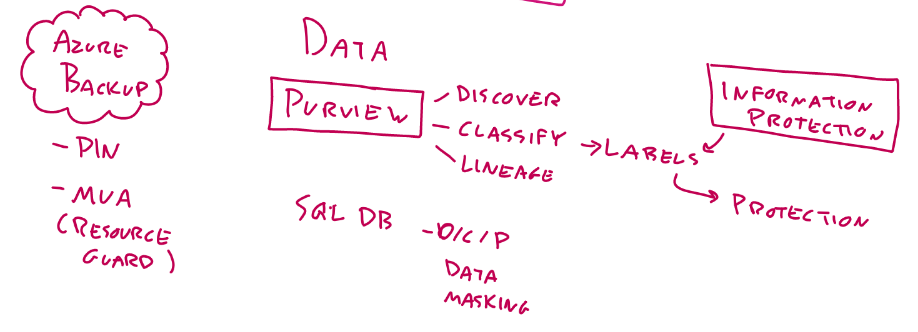 AZURE
BACKUP
- PIN
- MUA
(RESOURCE
GUARD)
DATA
PURVIEW
- DISCOVER
- CLASSIFY
- LINEAGE
→ LABELS
INFORMATION
PROTECTION
→ PROTECTION
SQL DB
- D/C/P
DATA
MASKING